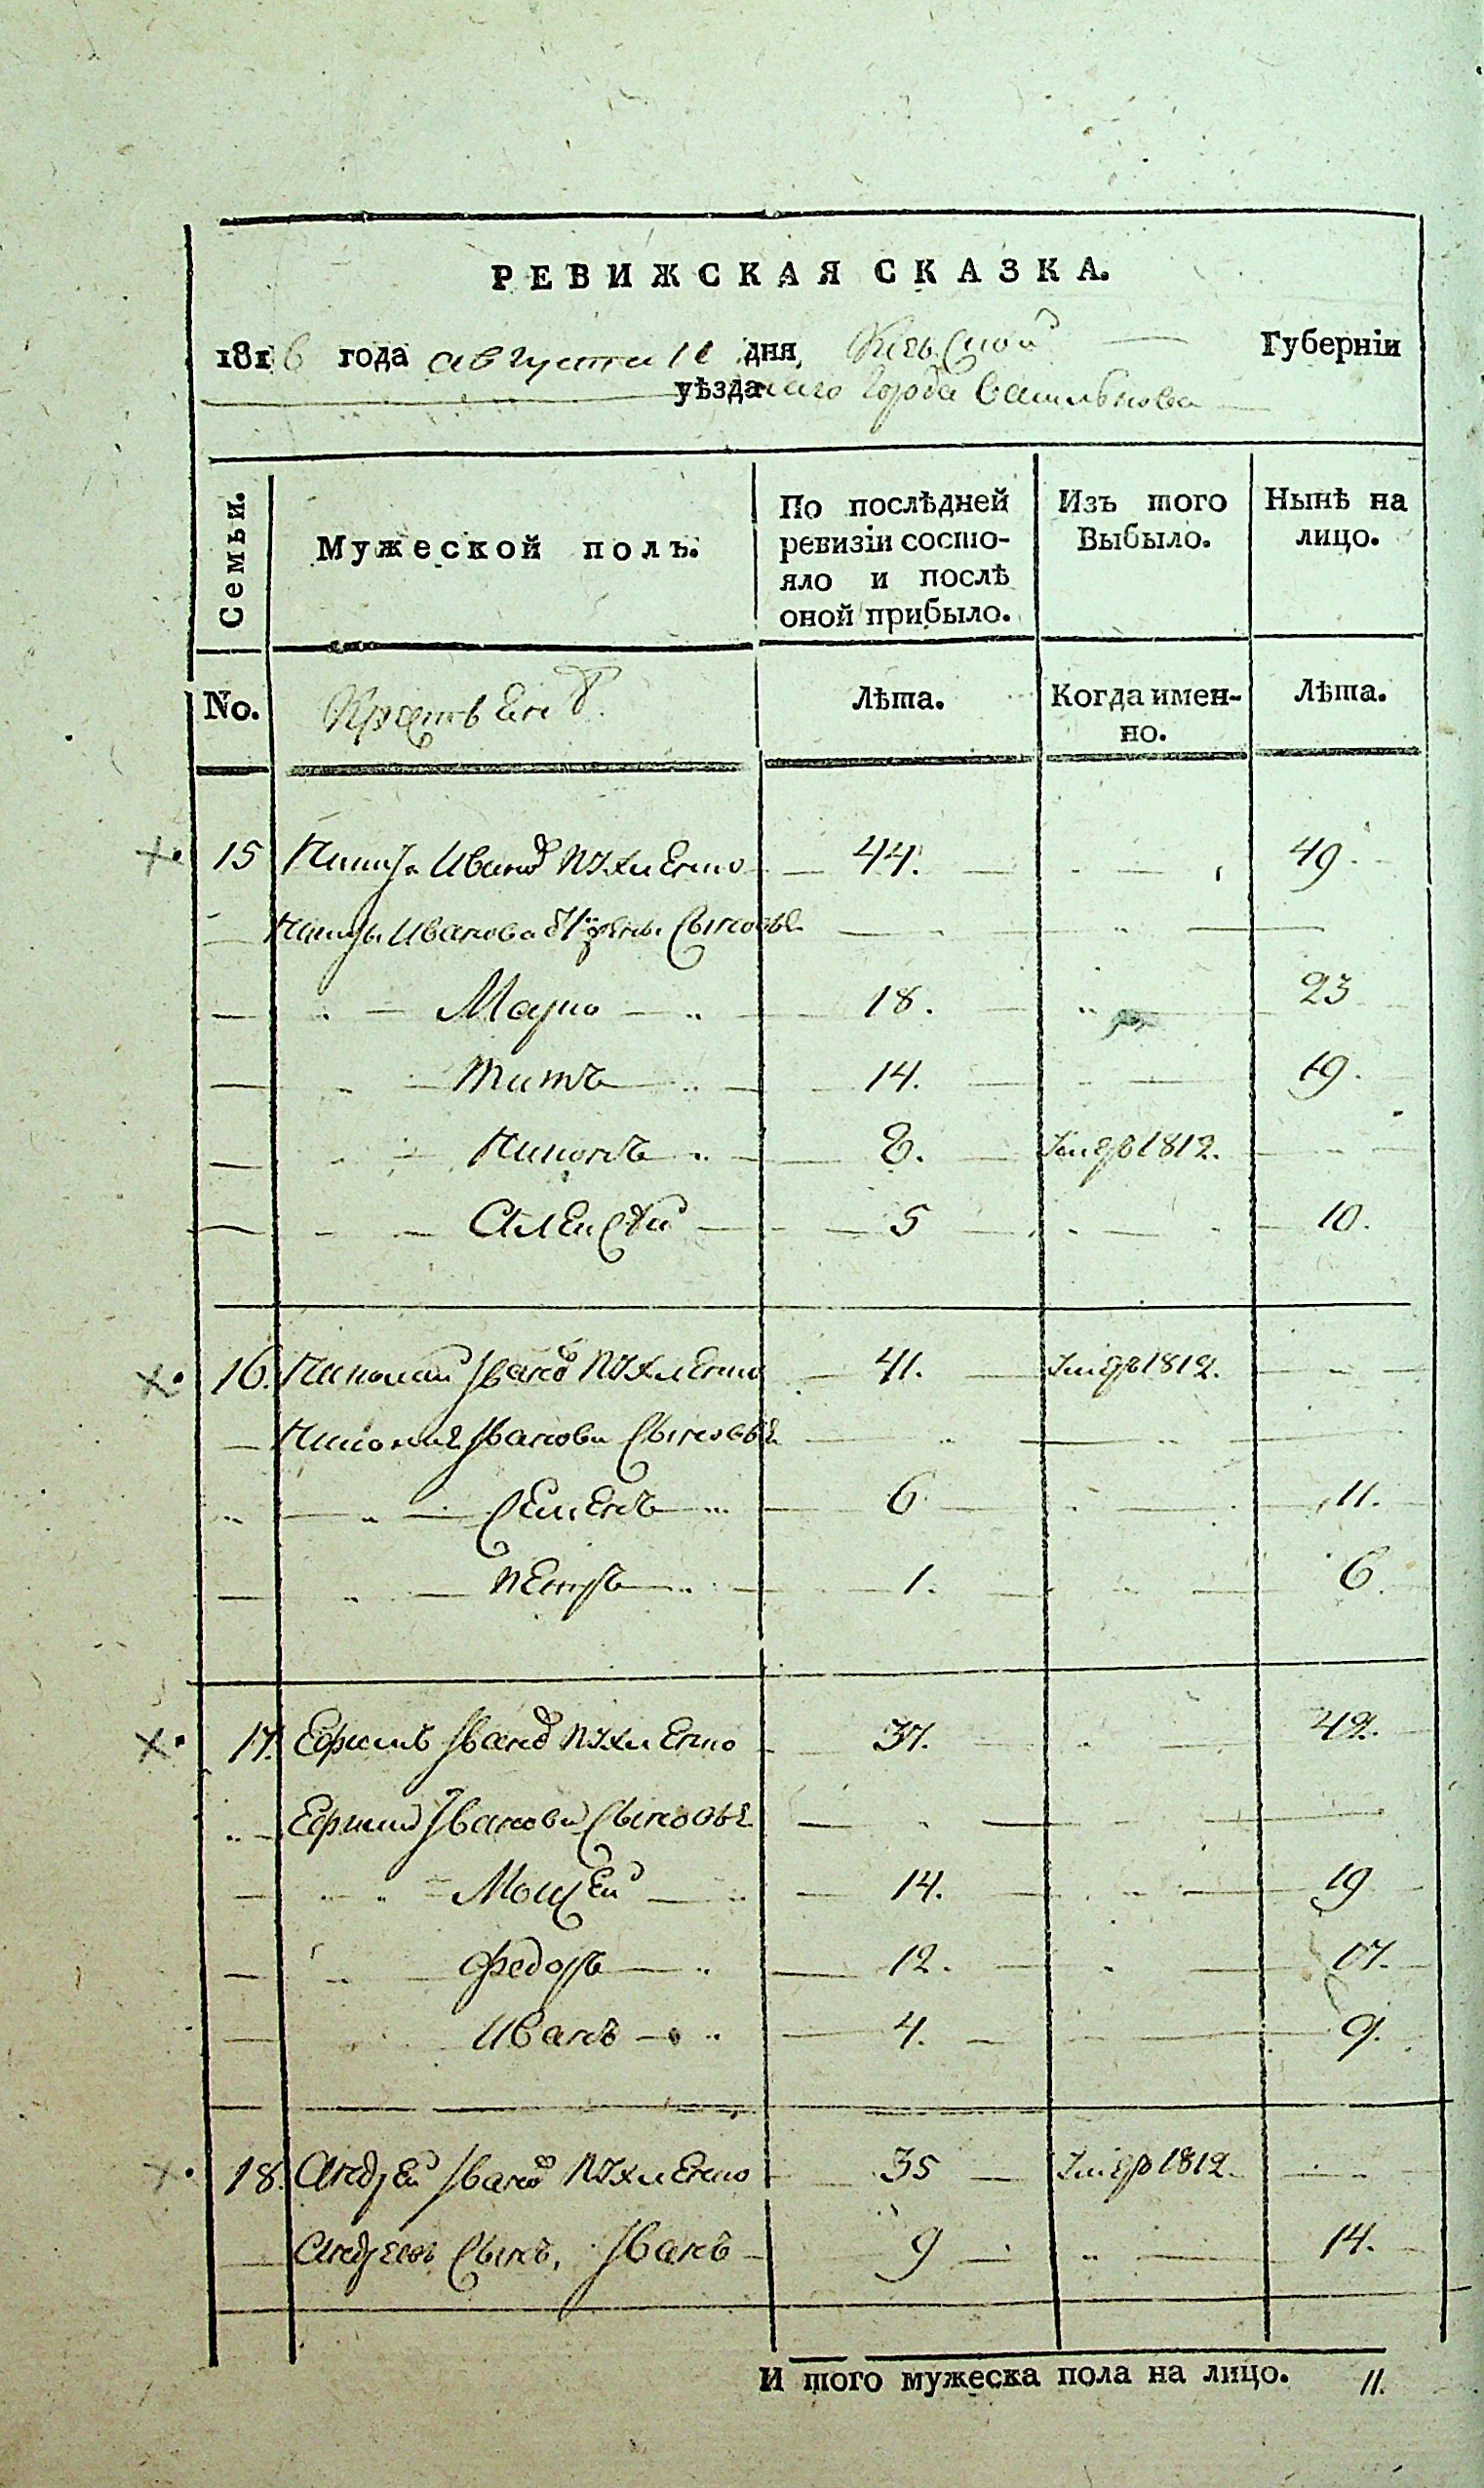 РЕВИЖСКАЯ СКАЗКА.
1816 года августа 11 дня, Киевской Губерніи
уѣзда наго города Василькова
Семьи.
Мужеской полъ.
По послѣдней ревизіи состояло и послѣ оной прибыло.
Изъ того Выбыло.
Нынѣ на лицо.
No.
Лѣта.
Когда именно.
Лѣта.
15 Никита Иванов Пухленко 44. 49.
Никиты Иванова сыновья
Марко 18. 23
Титъ 14. 19.
Никонъ 8. 1812.
Алексѣй 5 10.
16. Николай Іванов Пухленко 41. 1812.
Николая Іванова сыновья
Семенъ 6 11.
Петръ 1. 6.
17. Ефимъ Іванов Пухленко 37. 42.
Ефима Іванова сыновья
Моисей 14. 19
Федоръ 12. 17.
Иванъ 4. 9.
18. Андрей Іванов Пухленко 35 1812.
Андреевъ сынъ, Іванъ 9 14.
И того мужеска пола на лицо. 11.